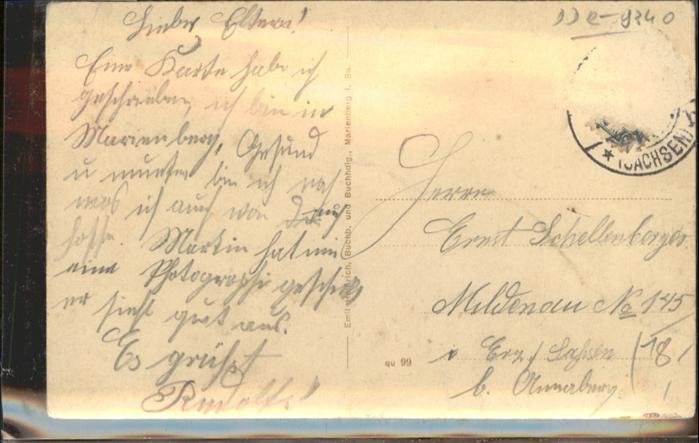 Lieber Eltern!
Eine Karte habe ich
geschrieben, ich bin in
Marienberg, Gesund
u munter bin ich noch
was ich auch von Euch
hoffe. Martin hat mir
eine Photographi geschickt
er sieht gut aus.
Es grüßt
Rudolf
Buchb. und Buchhdlg., Marienberg i. Sa.
qu 99
(SACHSEN)
Herrn
Ernst Schellenberger
Mildenau No 145
i Erz/ Sachsen
b. Annaberg